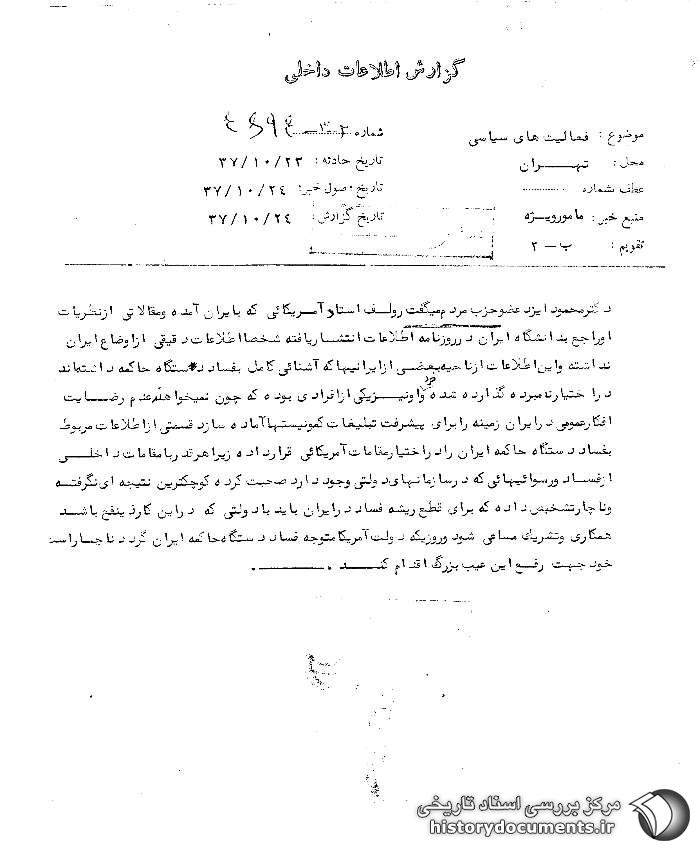 گزارش اطلاعات داخلی
موضوع : فعالیت های سیاسی
شماره
محل : تهـــران
تاریخ حادثه : ۳۷/۱۰/۲۳
عطف بشماره
تاریخ وصول خبر : ۳۷/۱۰/۲٤
منبع خبر : مامورویژه
تاریخ گزارش : ۳۷/۱۰/۲٤
تقویم : ب – ۲
دکترمحمود ایزد عضوحزب مردم میگفت رولف استاد آمریکائی که بایران آمده ومقالاتی ازنظریات
اوراجع بدانشگاه ایران درروزنامه اطلاعات انتشاریافته شخصا اطلاعات دقیقی ازاوضاع ایران
نداشته واین اطلاعات ازناحیه بعضی ازایرانیهاکه آشنائی کامل بفساد دستگاه حاکمه داشته‌اند
دراختیارنامبرده گذارده شده واونیزیکی ازافرادی بوده که چون نمیخواهد عدم رضایت
افکارعمومی درایران زمینه رابرای پیشرفت تبلیغات کمونیستهاآماده سازد قسمتی ازاطلاعات مربوط
بفساد دستگاه حاکمه ایران رادراختیارمقامات آمریکائی قرارداده زیراهرقدربامقامات داخلـــی
ازفساد ورسوائیهائی که درسازمانهای دولتی وجود دارد صحبت کرده کوچکترین نتیجه ای نگرفتـه
وناچارتشخیص داده که برای قطع ریشه فساد درایران باید بادولتی که دراین کارذینفع باشـــد
همکاری وتشریك مساعی شود وروزیکه دولت آمریکا متوجه فساد دستگاه حاکمه ایران گردد ناچاراست
خود جهت رفع این عیب بزرگ اقدام کنـــد .
مرکز بررسی اسناد تاریخی
historydocuments.ir